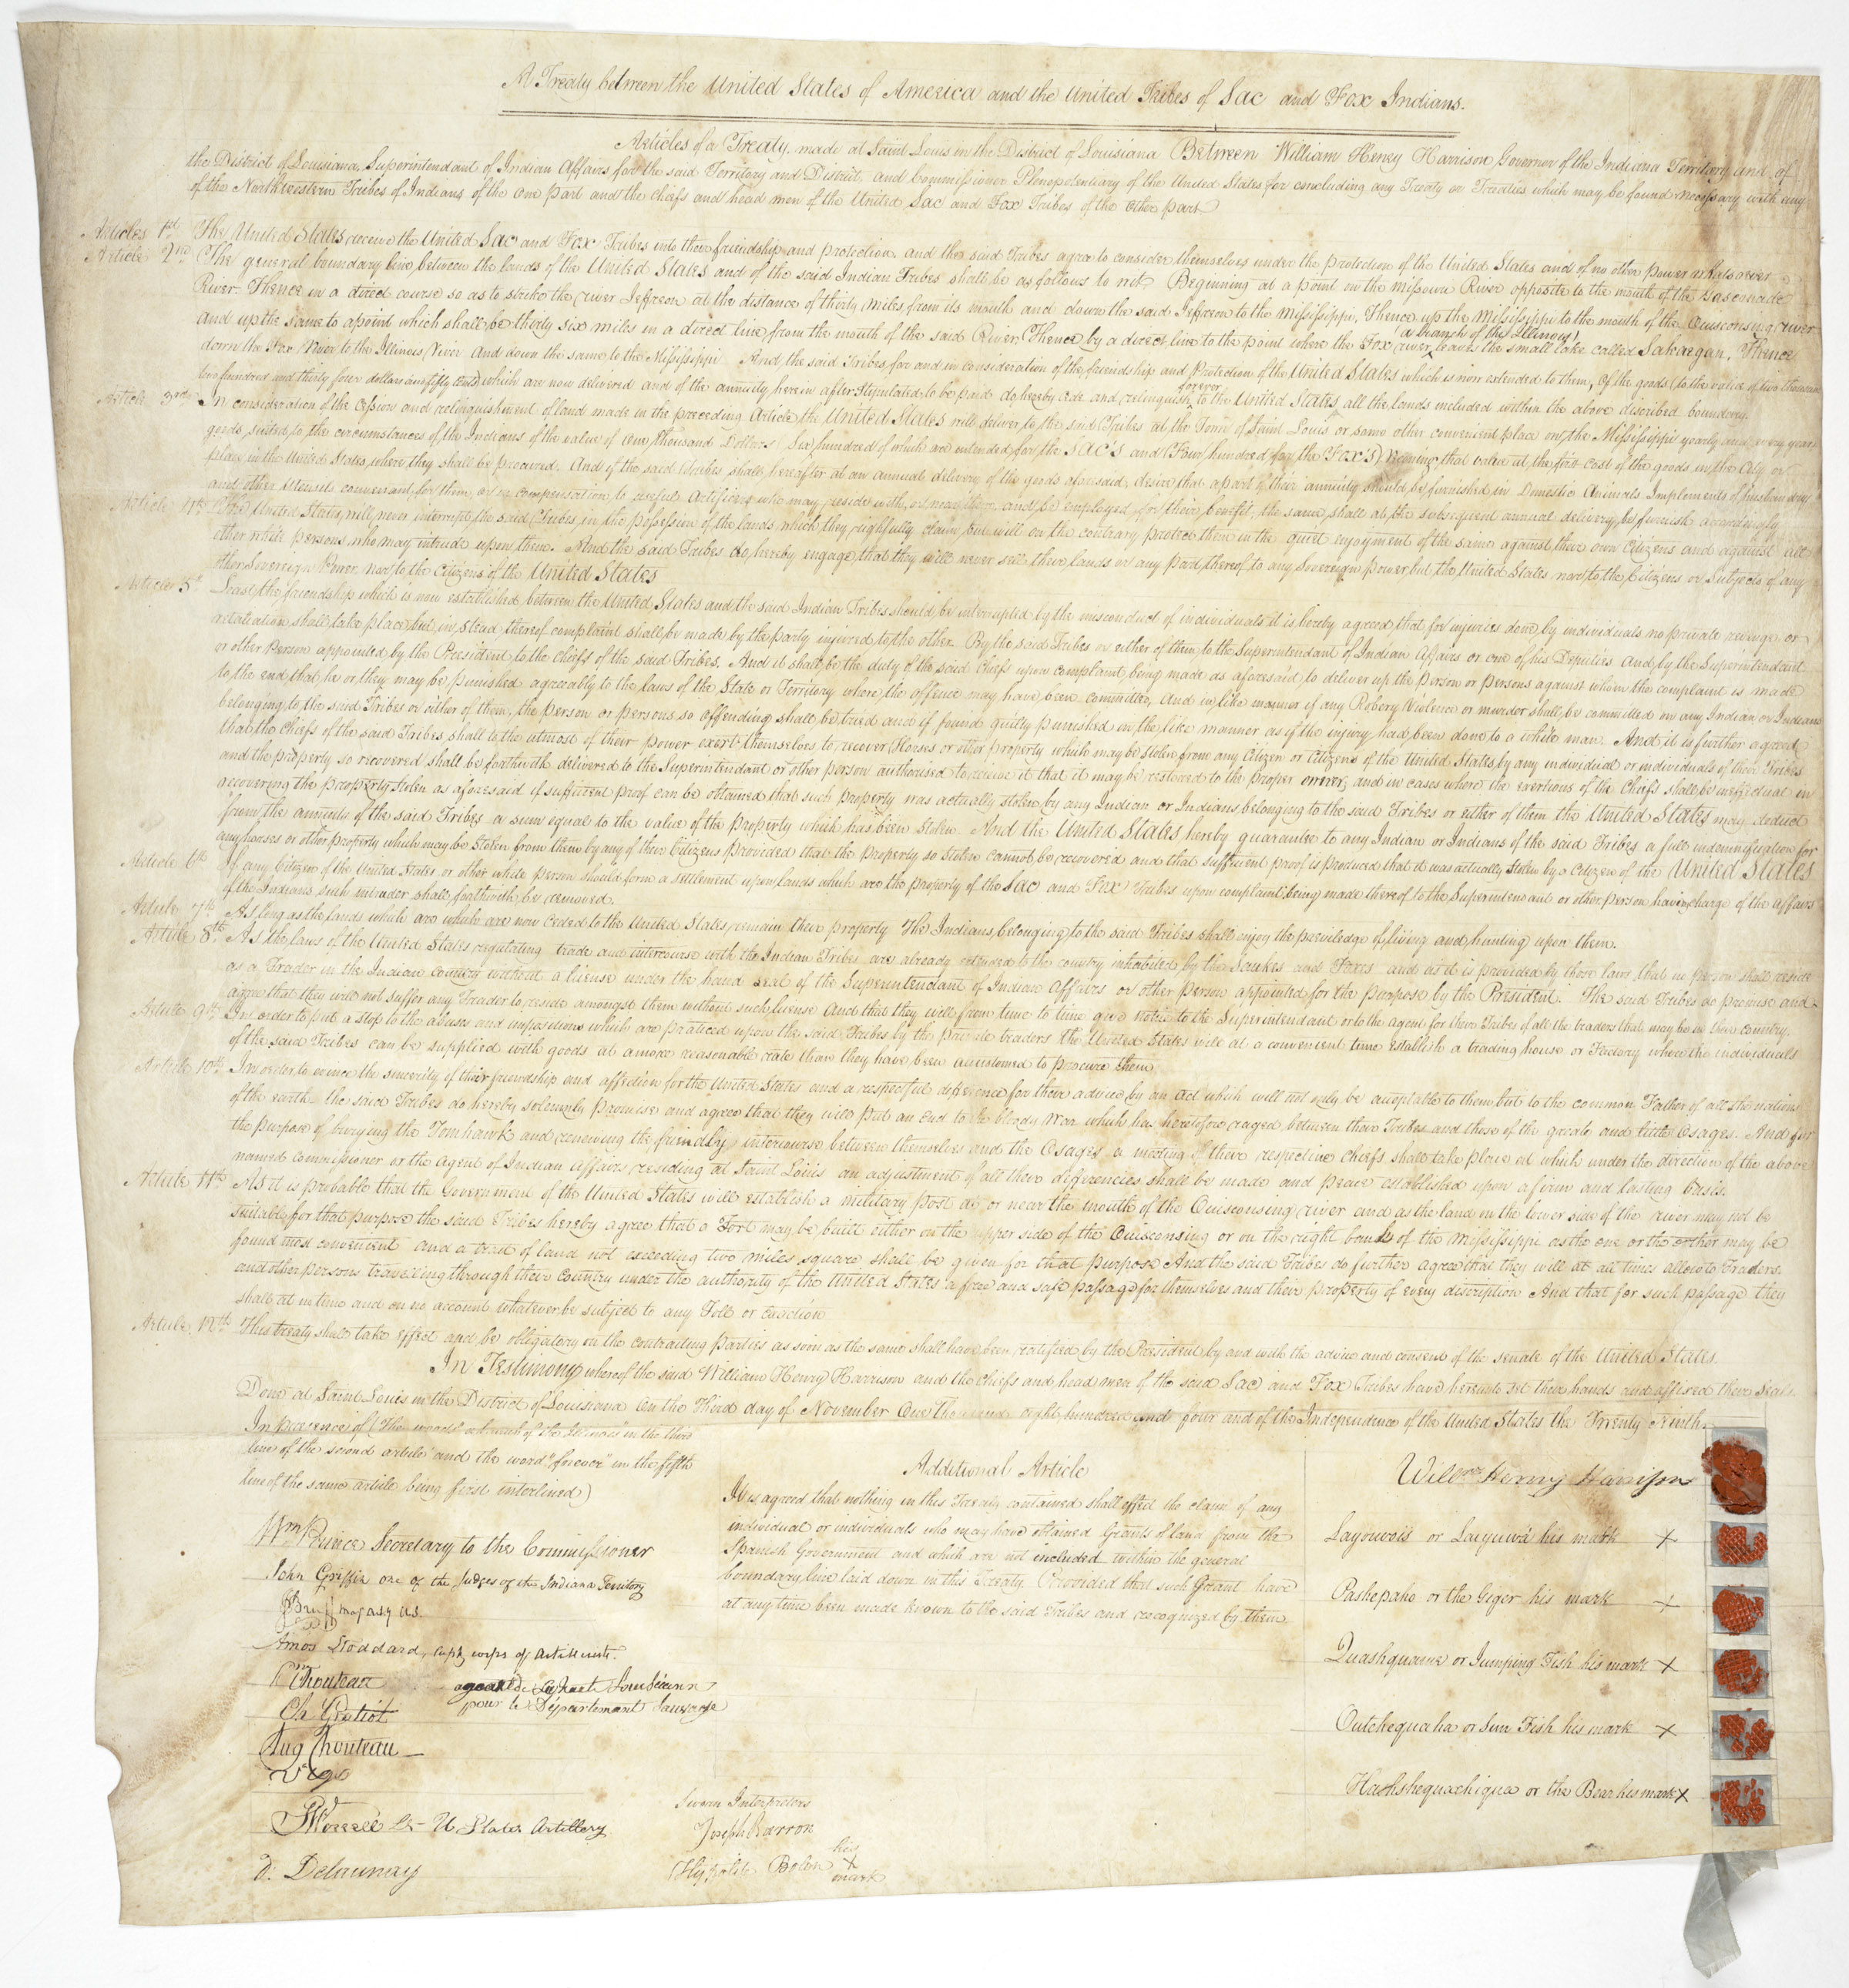 A Treaty between the United States of America and the United Tribes of Sac and Fox Indians.
Articles of a Treaty, made at Saint Louis in the District of Louisiana Between William Henry Harrison Governor of the Indiana Territory and of
the District of Louisiana, Superintendant of Indian Affairs for the said Territory and District, and Commissioner Plenepotentiary of the United States for concluding any Treaty or Treaties which may be found necessary with any
of the Northwestern Tribes of Indians of the one part and the Chiefs and head men of the United Sac and Fox Tribes of the other part
Article 1st. The United States receive the United Sac and Fox Tribes into their friendship and protection, and the said Tribes agree to consider themselves under the protection of the United States and of no other power whatsoever
Article 2nd The general boundary line between the lands of the United States and of the said Indian Tribes shall be as follows to wit Beginning at a point on the Missouri River opposite to the mouth of the Gasconade
River Thence in a direct course so as to strike the river Jeffreon at the distance of thirty miles from its mouth and down the said Jeffreon to the Mississippi, Thence up the Mississippi to the mouth of the Ouisconsing river
and up the same to a point which shall be thirty six miles in a direct line from the mouth of the said River, Thence by a direct line to the point where the Fox river (a branch of the Illinois) leaves the small lake called Sakaegan, Thence
down the Fox River to the Illinois River And down the same to the Mississippi And the said Tribes for and in consideration of the friendship and protection of the United States which is now extended to them, of the goods (to the value of two thousand
two hundred and thirty four dollars and fifty cents) which are now delivered and of the annuity herein after stipulated to be paid do hereby cede and relinquish forever to the United States all the lands included within the above discribed boundary.
Article 3rd In consideration of the Cession and relinquishment of land made in the preceding Article the United States will deliver to the said Tribes at the Town of Saint Louis or some other convenient place on the Mississippi yearly and every year
goods suited to the circumstances of the Indians of the value of one thousand Dollars (Six hundred of which are intended for the Sac's and Four hundred for the Fox's) reckoning that value at the first cost of the goods in the City or
place in the United States where they shall be procured. And if the said Tribes shall hereafter at an annual delivery of the goods aforesaid desire that a part of their annuity should be furnished in Domestic Animals Implements of husbandry
and other utensils convenient for them, or in compensation to useful Artificers who may reside with or near them and be employed for their benefit, the same shall at the subsequent annual delivery be furnish accordingly
Article 4th The United States will never interrupt the said Tribes in the possession of the lands which they rightfully claim, but will on the contrary protect them in the quiet enjoyment of the same against their own Citizens and against all
other white persons who may intrude upon them. And the said Tribes do hereby engage that they will never sell their lands or any part thereof to any Sovereign power but the United States nor to the Citizens or subjects of any
other Sovereign Power, nor to the Citizens of the United States
Article 5th Least the friendship which is now established between the United States and the said Indian Tribes should be interrupted by the misconduct of individuals it is hereby agreed that for injuries done by individuals no private revenge or
retaliation shall take place but, in stead thereof complaint shall be made by the party injured to the other By the said Tribes or either of them to the Superintendant of Indian Affairs or one of his Deputies and by the Superintendant
or other Person appointed by the President to the Chiefs of the said Tribes. And it shall be the duty of the said Chiefs upon complaint being made as aforesaid to deliver up the Person or persons against whom the complaint is made
to the end that he or they may be punished agreeably to the laws of the State or Territory where the offence may have been committed, and in like manner if any Robery Violence or murder shall be committed on any Indian or Indians
belonging to the said Tribes or either of them, the person or persons so offending shall be tried and if found guilty punished in the like manner as if the injury had been done to a white man. And it is further agreed
that the Chiefs of the said Tribes shall to the utmost of their power exert themselves to recover Horses or other property which may be stolen from any Citizen or Citizens of the United States by any individual or individuals of their Tribes
and the property so recovered shall be forthwith delivered to the Superintendant or other person authorised to receive it that it may be restored to the proper owner, and in cases where the exertions of the Chiefs shall be ineffectual in
recovering the property stolen as aforesaid if sufficient proof can be obtained that such property was actually stolen by any Indian or Indians belonging to the said Tribes or either of them the United States may deduct
from the annuity of the said Tribes a sum equal to the value of the property which has been stolen. And the United States hereby guarantee to any Indian or Indians of the said Tribes a full indemnification for
any horses or other property which may be stolen from them by any of their Citizens Provided that the property so stolen cannot be recovered and that sufficient proof is produced that it was actually stolen by a Citizen of the United States
Article 6th If any Citizen of the United States or other white person should form a settlement upon lands which are the property of the Sac and Fox Tribes upon complaint being made thereof to the Superintendant or other person having charge of the affairs
of the Indians such intruder shall forthwith be removed.
Article 7th As long as the lands which are now Ceded to the United States remain their property The Indians belonging to the said Tribes shall enjoy the priviledge of living and hunting upon them.
Article 8th As the laws of the United States regulating trade and intercourse with the Indian Tribes are already extended to the country inhabited by the Saukes and Foxes and as it is provided by those laws that no person shall reside
as a Trader in the Indian country without a license under the hand seal of the Superintendant of Indian Affairs or other Person appointed for the purpose by the President. The said Tribes do promise and
agree that they will not suffer any Trader to reside amongst them without such license And that they will from time to time give notice to the Superintendant or to the agent for their Tribes of all the traders that may be in their country.
Article 9th In order to put a stop to the abuses and impositions which are practiced upon the said Tribes by the private traders the United States will at a convenient time establish a trading house or Factory where the individuals
of the said Tribes can be supplied with goods at a more reasonable rate than they have been accustomed to procure them
Article 10th In order to evince the sincerity of their friendship and affection for the United States and a respectful deference for their advice by an act which will not only be acceptable to them but to the common Father of all the nations
of the earth the said Tribes do hereby solemnly promise and agree that they will put an end to the bloody war which has heretofore raged between their Tribes and those of the greate and little Osages. And for
the purpose of burying the Tomhawk and renewing the friendly intercourse between themselves and the Osages, a meeting of their respective Chiefs shall take place at which under the direction of the above
named commissioner or the agent of Indian affairs residing at Saint Louis an adjustment of all their differencies shall be made and peace established upon a firm and lasting basis.
Article 11th As it is probable that the Government of the United States will establish a military Post at or near the mouth of the Ouisconsing river and as the land on the lower side of the river may not be
suitable for that purpose the said Tribes hereby agree that a Fort may be built either on the upper side of the Ouisconsing or on the right bank of the Mississippi as the one or the other may be
found most convenient and a tract of land not exceeding two miles square shall be given for that purpose And the said Tribes do further agree that they will at all times allow to Traders
and other persons travelling through their Country under the authority of the United States a free and safe passage for themselves and their property of every discription And that for such passage they
shall at no time and on no account whatever be subject to any Toll or exaction
Article 12th This treaty shall take effect and be obligatory on the contracting parties as soon as the same shall have been ratified by the President by and with the advice and consent of the senate of the United States.
In Testimony whereof the said William Henry Harrison and the chiefs and head men of the said Sac and Fox Tribes have hereunto set their hands and affixed their Seals.
Done at Saint Louis in the District of Louisiana on the Third day of November One thousand eight hundred and four and of the Independence of the United States the Twenty Ninth.
In presence of (The words "a branch of the Illinois" in the third
line of the second article and the word "forever" in the fifth
line of the same article being first interlined)
Wm Prince Secretary to the Commissioner
John Griffin one of the Judges of the Indiana Territory
J Bruff Maj Arty U.S.
Amos Stoddard, Capt corps of Artillerists.
P Chouteau agent de la haute Louisianne
pour le Département Sauvage
Ch Gratiot
Aug Chouteau
Vigo
S Worrell Lt U States Artillery
D. Delaunay
Additional Article
It is agreed that nothing in this Treaty contained shall effect the claim of any
individual or individuals who may have obtained Grants of land from the
Spanish Government and which are not included within the general
boundary line laid down in this Treaty. Provided that such Grant have
at any time been made known to the said Tribes and recognized by them
Sworn Interpreters
Joseph Barron
Hypolite Bolon his
X
mark
Willm Henry Harrison
Layouvois or Laiyuwa his mark X
Pashepaho or the Giger his mark X
Quashquame or Jumping Fish his mark X
Outchequaha or Sun Fish his mark X
Hashshequaxhiqua or the Bear his mark X